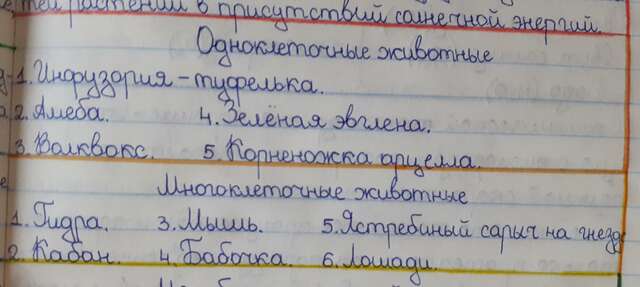 тей растений в присутствий солнечной энергий.
Одноклеточные животные
1. Инфузория - туфелька.
2. Амеба. 4. Зелёная эвглена.
3. Волквокс. 5. Корненожка арцелла.
Многоклеточные животные
1. Гидра. 3. Мышь. 5. Ястребиный сарыч на гнезде
2. Кабан. 4. Бабочка. 6. Лошади.